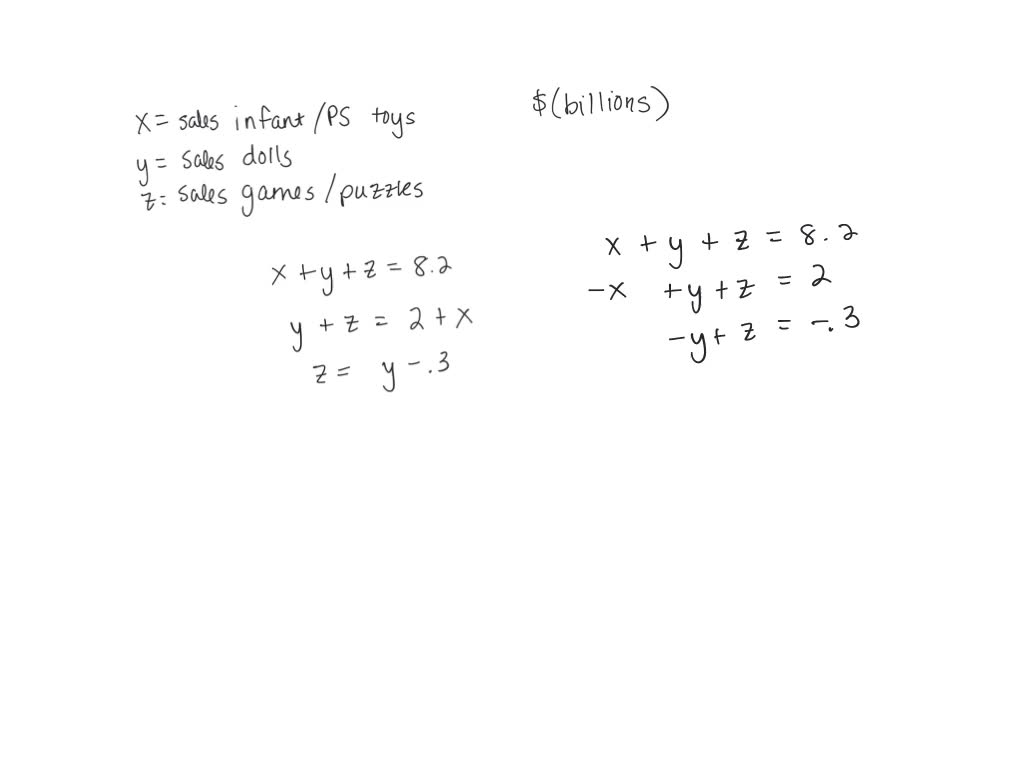 x = sales infant/PS toys
$(billions)
y = sales dolls
z: sales games/puzzles
x + y + z = 8.2
y + z = 2 + x
z = y - .3
x + y + z = 8.2
-x + y + z = 2
-y + z = -.3